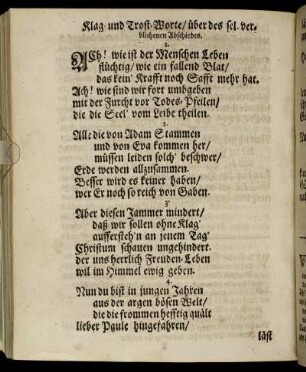 Klag- und Trost-Worte/ über des sel. ver-
blichenen Abschiedes.
1.
ACh! wie ist der Menschen Leben
flüchtig/ wie ein fallend Blat/
das kein' Krafft noch Safft mehr hat.
Ach! wie sind wir fort umbgeben
mit der Furcht vor Todes-Pfeilen/
die die Seel' vom Leibe theilen.
2.
Alle die von Adam Stammen
und von Eva kommen her/
müssen leiden solch' beschwer/
Erde werden allzusammen.
Besser wird es keiner haben/
wer Er noch so reich von Gaben.
3
Aber diesen Jammer mindert/
daß wir sollen ohne Klag'
aufferstehn an jenem Tag'
Christum schauen ungehindert.
der uns herrlich Freuden-Leben
wil im Himmel ewig geben.
4.
Nun du bist in jungen Jahren
aus der argen bösen Welt/
die die frommen hefftig quält
lieber Paule hingefahren/
läst